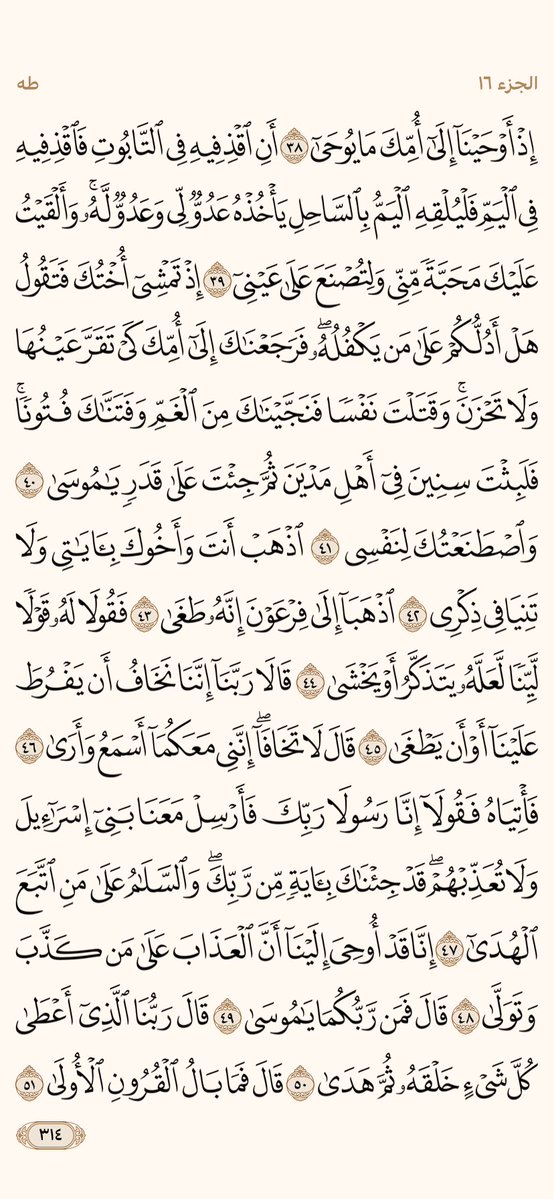 الجزء ١٦
طه
إِذْ أَوْحَيْنَآ إِلَىٰٓ أُمِّكَ مَا يُوحَىٰٓ ٣٨ أَنِ ٱقْذِفِيهِ فِى ٱلتَّابُوتِ فَٱقْذِفِيهِ
فِى ٱلْيَمِّ فَلْيُلْقِهِ ٱلْيَمُّ بِٱلسَّاحِلِ يَأْخُذْهُ عَدُوٌّ لِّى وَعَدُوٌّ لَّهُۥ ۚ وَأَلْقَيْتُ
عَلَيْكَ مَحَبَّةً مِّنِّى وَلِتُصْنَعَ عَلَىٰ عَيْنِىٓ ٣٩ إِذْ تَمْشِىٓ أُخْتُكَ فَتَقُولُ
هَلْ أَدُلُّكُمْ عَلَىٰ مَن يَكْفُلُهُۥ ۖ فَرَجَعْنَٰكَ إِلَىٰٓ أُمِّكَ كَىْ تَقَرَّ عَيْنُهَا
وَلَا تَحْزَنَ ۚ وَقَتَلْتَ نَفْسًا فَنَجَّيْنَٰكَ مِنَ ٱلْغَمِّ وَفَتَنَّٰكَ فُتُونًا ۚ
فَلَبِثْتَ سِنِينَ فِىٓ أَهْلِ مَدْيَنَ ثُمَّ جِئْتَ عَلَىٰ قَدَرٍ يَٰمُوسَىٰ ٤٠
وَٱصْطَنَعْتُكَ لِنَفْسِى ٤١ ٱذْهَبْ أَنتَ وَأَخُوكَ بِـَٔايَٰتِى وَلَا
تَنِيَا فِى ذِكْرِى ٤٢ ٱذْهَبَآ إِلَىٰ فِرْعَوْنَ إِنَّهُۥ طَغَىٰ ٤٣ فَقُولَا لَهُۥ قَوْلًا
لَّيِّنًا لَّعَلَّهُۥ يَتَذَكَّرُ أَوْ يَخْشَىٰ ٤٤ قَالَا رَبَّنَآ إِنَّنَا نَخَافُ أَن يَفْرُطَ
عَلَيْنَآ أَوْ أَن يَطْغَىٰ ٤٥ قَالَ لَا تَخَافَآ ۖ إِنَّنِى مَعَكُمَآ أَسْمَعُ وَأَرَىٰ ٤٦
فَأْتِيَاهُ فَقُولَآ إِنَّا رَسُولَا رَبِّكَ فَأَرْسِلْ مَعَنَا بَنِىٓ إِسْرَٰٓءِيلَ
وَلَا تُعَذِّبْهُمْ ۖ قَدْ جِئْنَٰكَ بِـَٔايَةٍ مِّن رَّبِّكَ ۖ وَٱلسَّلَٰمُ عَلَىٰ مَنِ ٱتَّبَعَ
ٱلْهُدَىٰٓ ٤٧ إِنَّا قَدْ أُوحِىَ إِلَيْنَآ أَنَّ ٱلْعَذَابَ عَلَىٰ مَن كَذَّبَ
وَتَوَلَّىٰ ٤٨ قَالَ فَمَن رَّبُّكُمَا يَٰمُوسَىٰ ٤٩ قَالَ رَبُّنَا ٱلَّذِىٓ أَعْطَىٰ
كُلَّ شَىْءٍ خَلْقَهُۥ ثُمَّ هَدَىٰ ٥٠ قَالَ فَمَا بَالُ ٱلْقُرُونِ ٱلْأُولَىٰ ٥١
٣١٤